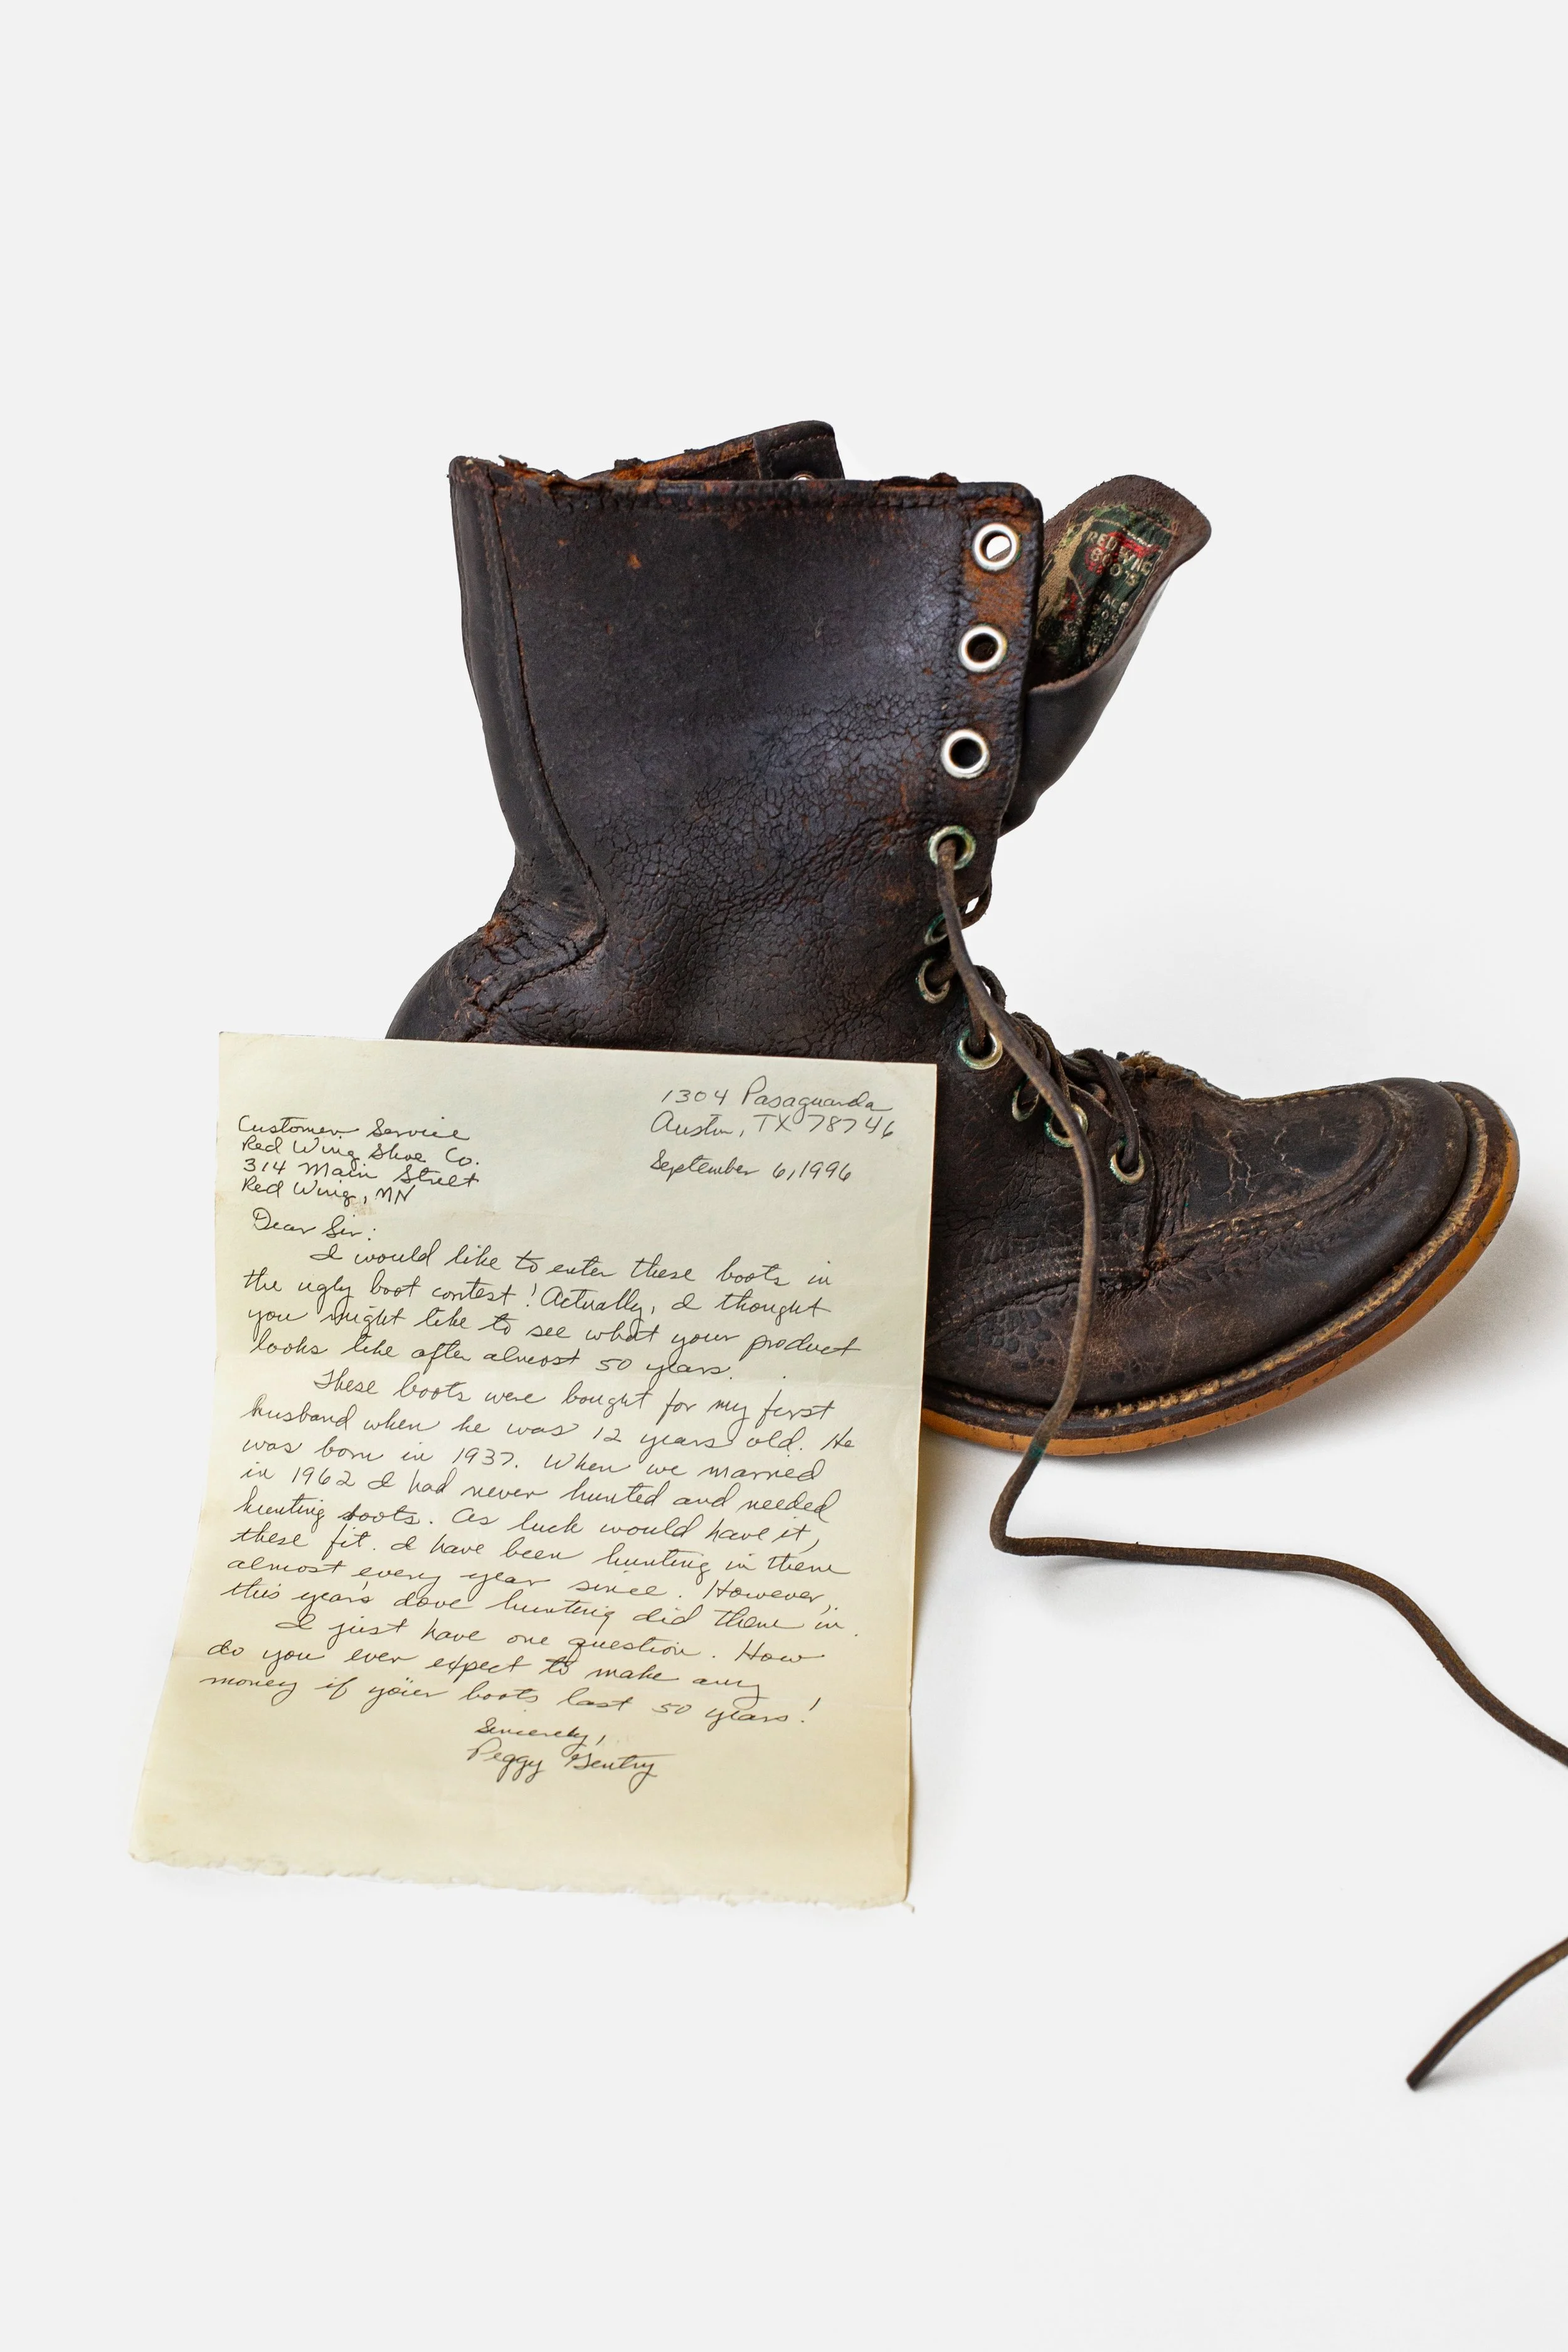 RED WING
BOOTS
SINCE
1905
1304 Pasaguarda
Austin, TX 78746
September 6, 1996
Customer Service
Red Wing Shoe Co.
314 Main Street
Red Wing, MN
Dear Sir:
I would like to enter these boots in
the ugly boot contest! Actually, I thought
you might like to see what your product
looks like after almost 50 years.
These boots were bought for my first
husband when he was 12 years old. He
was born in 1937. When we married
in 1962 I had never hunted and needed
hunting boots. As luck would have it,
these fit. I have been hunting in them
almost every year since. However,
this year's dove hunting did them in.
I just have one question. How
do you ever expect to make any
money if your boots last 50 years!
Sincerely,
Peggy Gentry